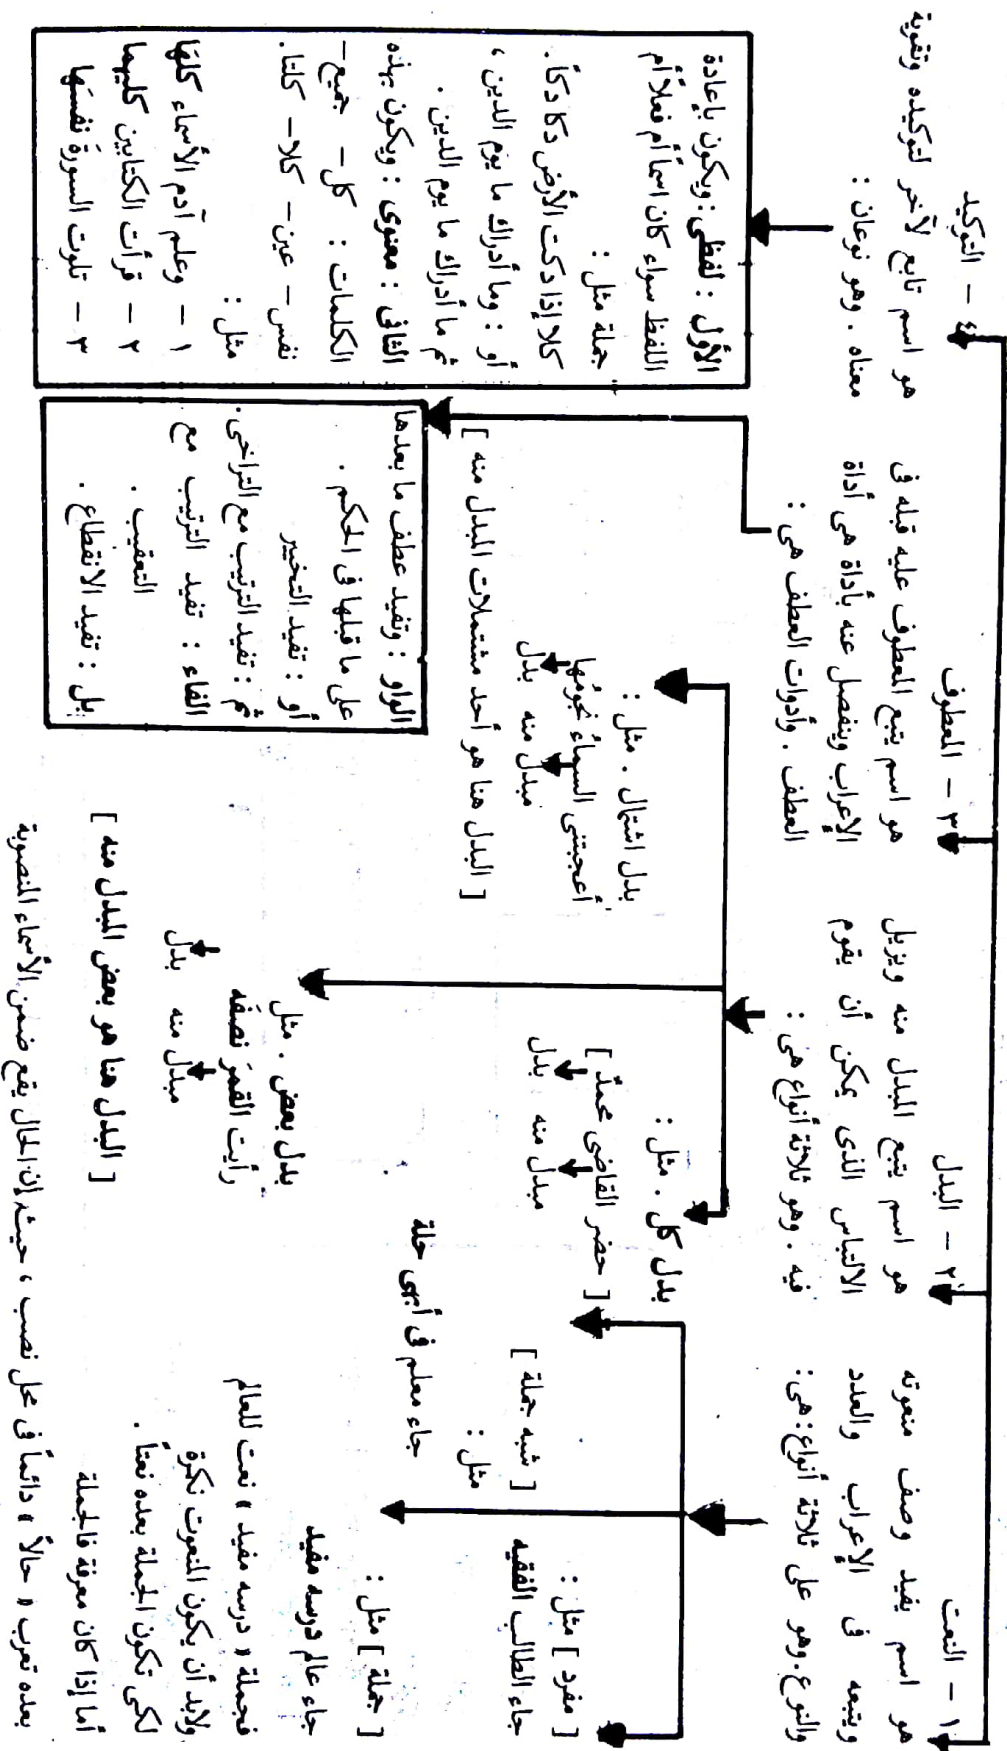 ١ – النعت
هو اسم يفيد وصف منعوته
ويتبعه فى الإعراب والعدد
والنوع. وهو على ثلاثة أنواع: هى:
[ مفرد ] مثل:
جاء الطالب الفقيه
[ جملة ] مثل:
جاء عالم درسه مفيد
فجملة « درسه مفيد » نعت للعالم
ولابد أن يكون المنعوت نكرة
لكى تكون الجملة بعده نعتاً.
أما إذا كان معرفة فالجملة
بعده تعرب « حالاً » دائماً فى محل نصب ، حيث إن الحال يقع ضمن الأسماء المنصوبة
[ شبه جملة ]
مثل:
جاء معلم فى أبهى حلة
٢ – البدل
هو اسم يتبع المبدل منه ويزيل
الالتباس الذى يمكن أن يقوم
فيه . وهو ثلاثة أنواع هى :
بدل كل . مثل :
[ حضر القاضى محمدٌ ]
مبدل منه بدل
بدل بعض . مثل
رأيت القمرَ نصفَه
مبدل منه بدل
[ البدل هنا هو بعض المبدل منه ]
بدل اشتمال . مثل :
أعجبتنى السماءُ نجومُها
مبدل منه بدل
[ البدل هنا هو أحد مشتملات المبدل منه ]
٣ – المعطوف
هو اسم يتبع المعطوف عليه قبله فى
الإعراب وينفصل عنه بأداة هى أداة
العطف . وأدوات العطف هى :
الواو : وتفيد عطف ما بعدها
على ما قبلها فى الحكم .
أو : تفيد التخيير
ثم : تفيد الترتيب مع التراخى.
الفاء : تفيد الترتيب مع
التعقيب .
بل : تفيد الانقطاع .
٤ – التوكيد
هو اسم تابع لآخر لتوكيده وتقوية
معناه . وهو نوعان :
الأول : لفظى : ويكون بإعادة
اللفظ سواء كان اسماً أم فعلاً أم
جملة مثل :
كلا إذا دكت الأرض دكا دكاً.
أو : وما أدراك ما يوم الدين ،
ثم ما أدراك ما يوم الدين .
الثانى : معنوى : ويكون بهذه
الكلمات : كل – جميع –
نفس – عين – كلا – كلتا.
مثل :
١ – وعلم آدم الأسماء كلها
٢ – قرأت الكتابين كليهما
٣ – تلوت السورةَ نفسَها